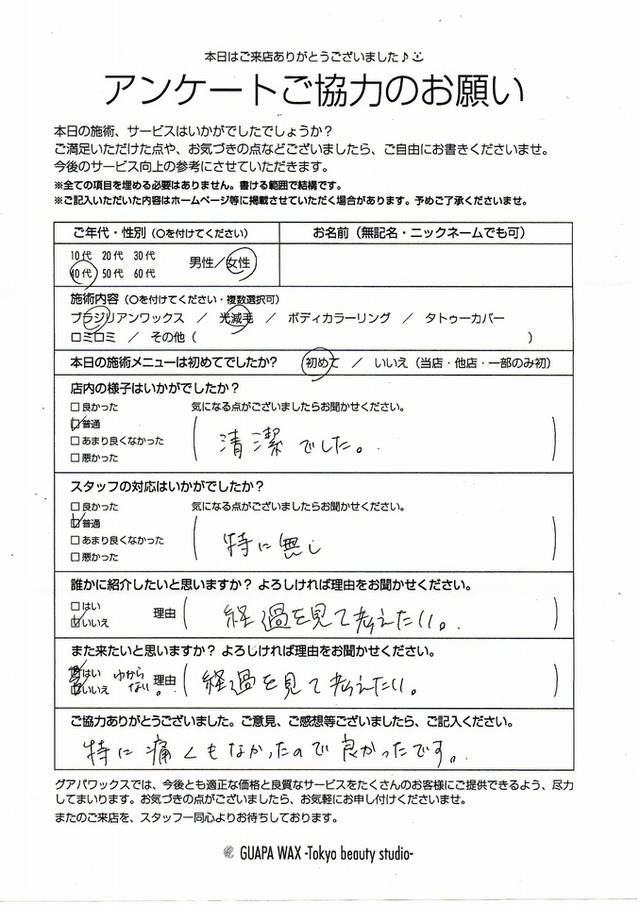 本日はご来店ありがとうございました♪
アンケートご協力のお願い
本日の施術、サービスはいかがでしたでしょうか？
ご満足いただけた点や、お気づきの点などございましたら、ご自由にお書きくださいませ。
今後のサービス向上の参考にさせていただきます。
※全ての項目を埋める必要はありません。書ける範囲で結構です。
※ご記入いただいた内容はホームページ等に掲載させていただく場合があります。予めご了承くださいませ。
ご年代・性別（○を付けてください） お名前（無記名・ニックネームでも可）
10代 20代 30代
男性／女性
40代 50代 60代
施術内容（○を付けてください・複数選択可）
ブラジリアンワックス ／ 光減毛 ／ ボディカラーリング ／ タトゥーカバー
ロミロミ ／ その他（ ）
本日の施術メニューは初めてでしたか？ 初めて ／ いいえ（当店・他店・一部のみ初）
店内の様子はいかがでしたか？
□良かった 気になる点がございましたらお聞かせください。
□普通
□あまり良くなかった 清潔でした。
□悪かった
スタッフの対応はいかがでしたか？
□良かった 気になる点がございましたらお聞かせください。
□普通
□あまり良くなかった 特に無し
□悪かった
誰かに紹介したいと思いますか？ よろしければ理由をお聞かせください。
□はい
□いいえ 理由 経過を見て考えたい。
また来たいと思いますか？ よろしければ理由をお聞かせください。
□はい わからない。 理由 経過を見て考えたい。
□いいえ
ご協力ありがとうございました。ご意見、ご感想等ございましたら、ご記入ください。
特に痛くもなかったので良かったです。
グアパワックスでは、今後とも適正な価格と良質なサービスをたくさんのお客様にご提供できるよう、尽力
してまいります。お気づきの点がございましたら、お気軽にお申し付けくださいませ。
またのご来店を、スタッフ一同心よりお待ちしております。
GUAPA WAX -Tokyo beauty studio-